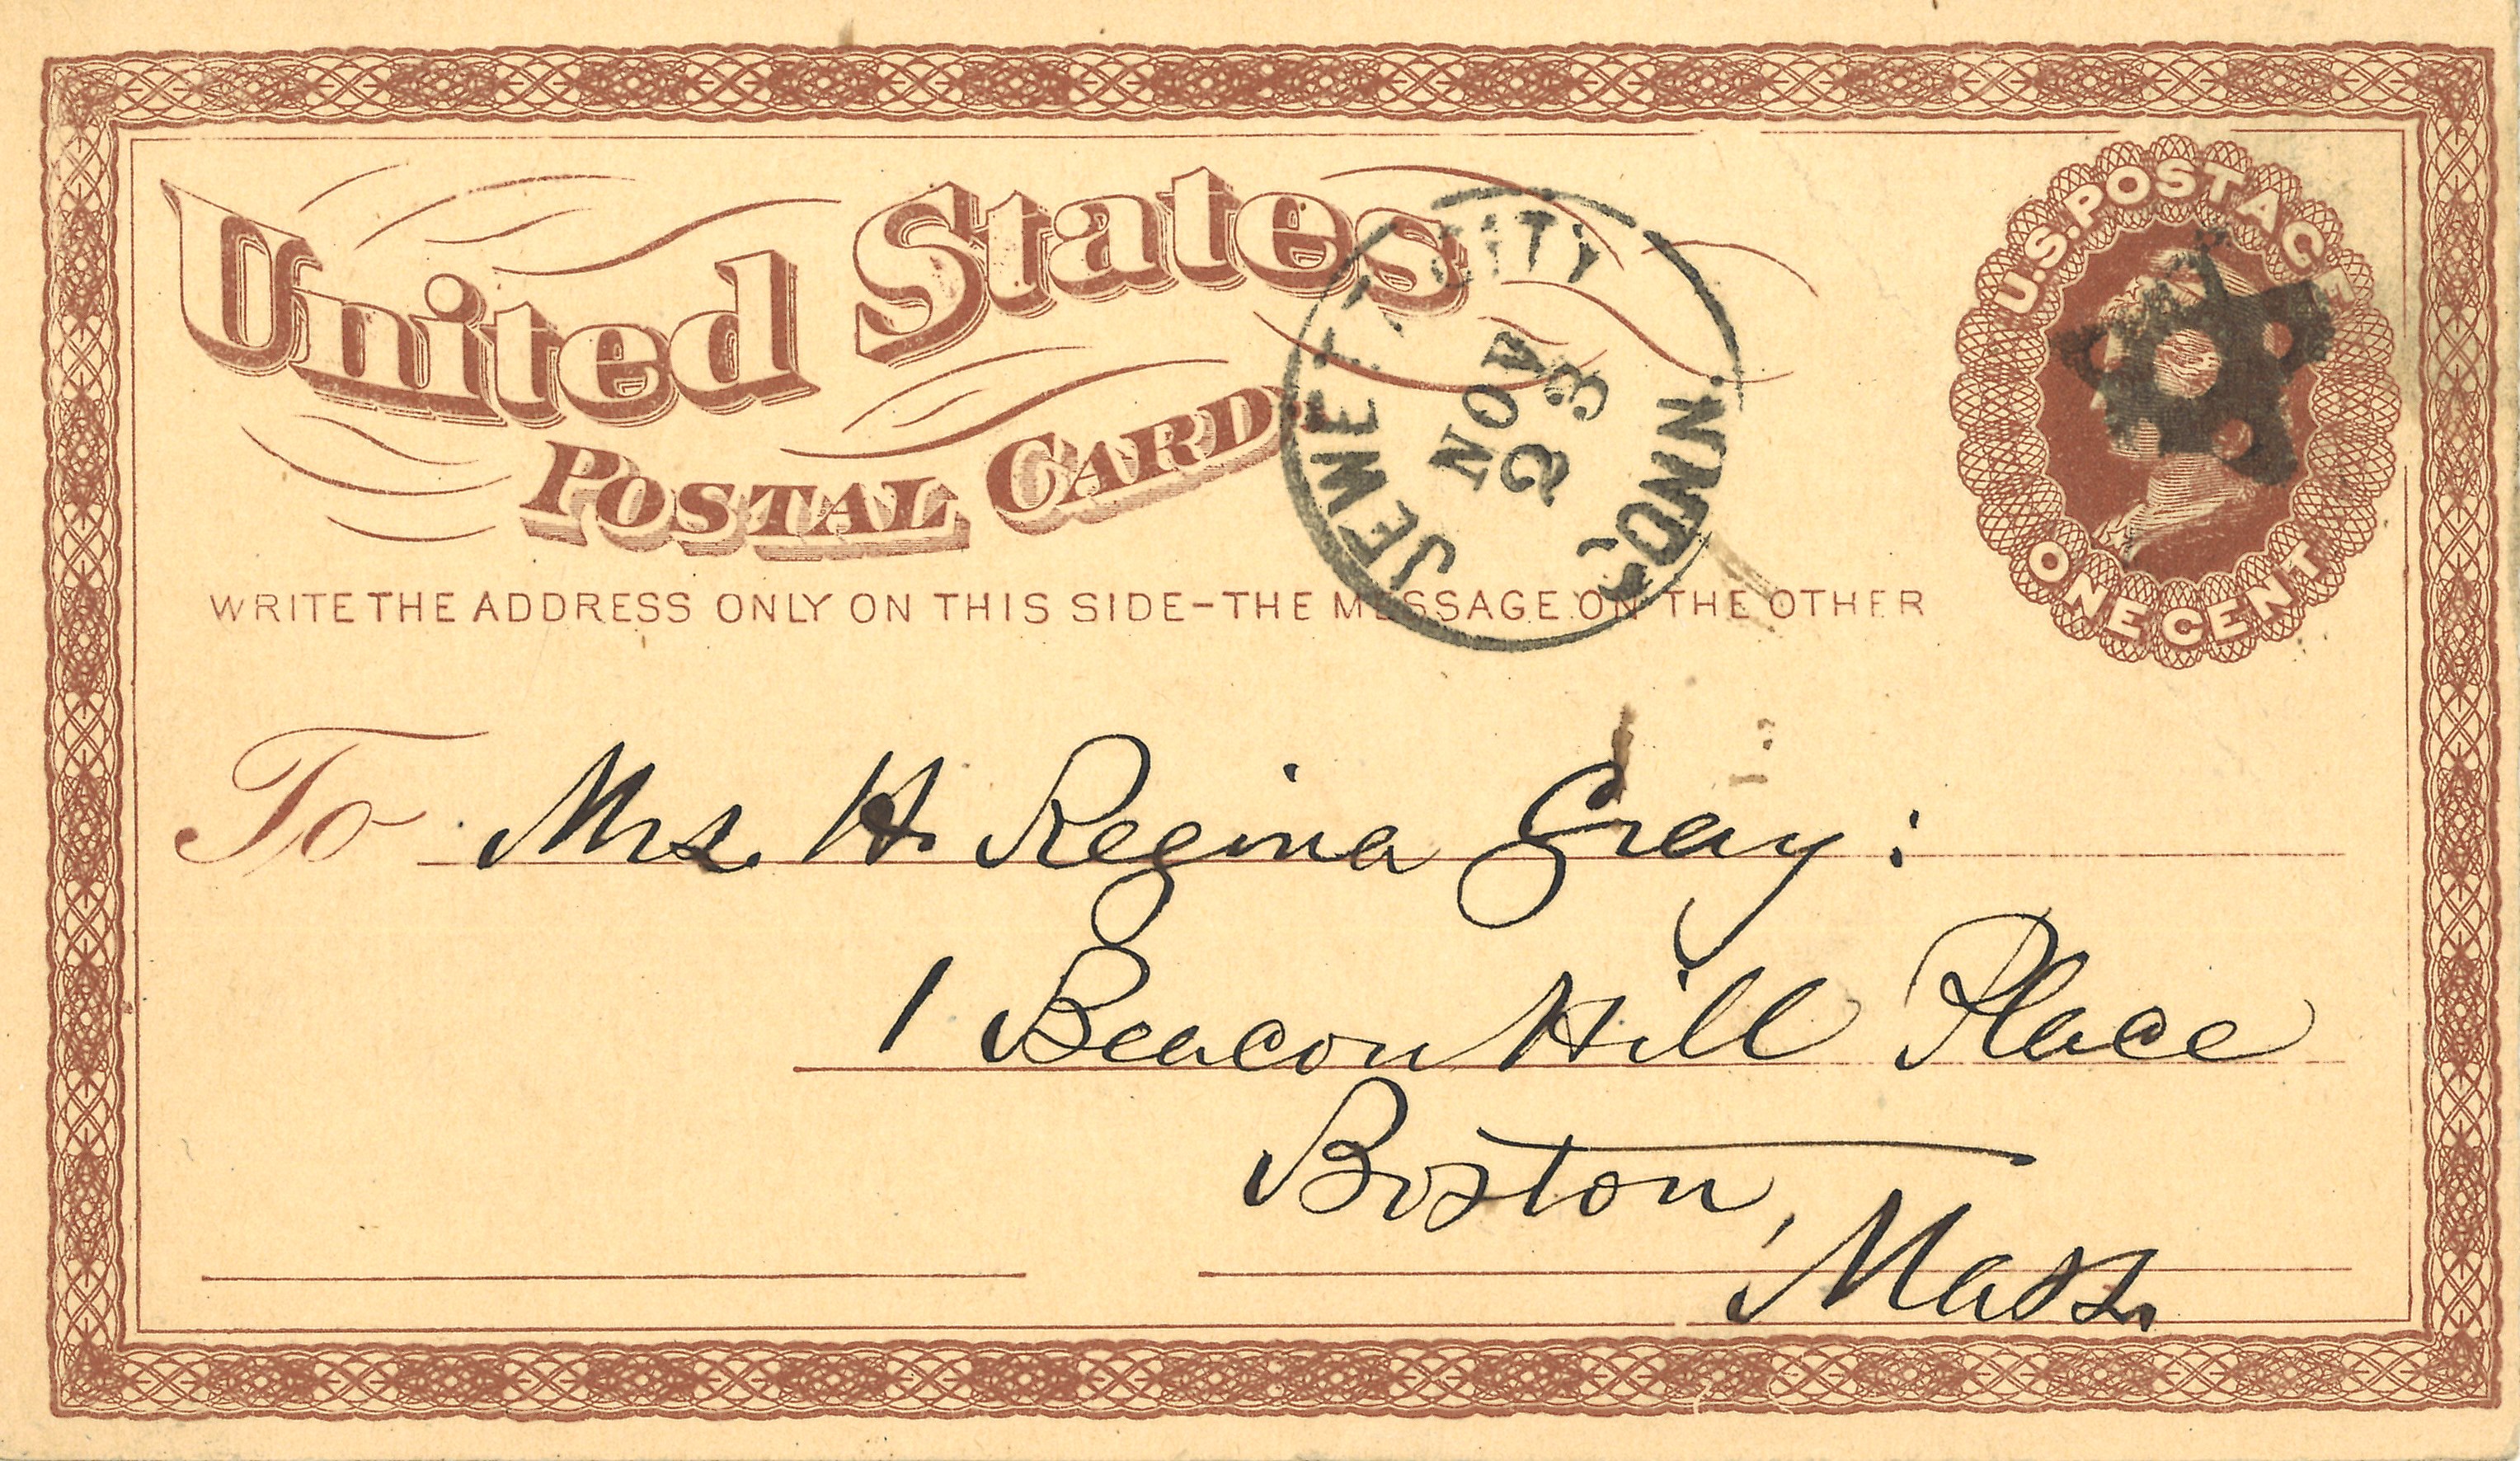 United States
POSTAL CARD
WRITE THE ADDRESS ONLY ON THIS SIDE-THE MESSAGE ON THE OTHER
U.S. POSTAGE
ONE CENT
JEWETT CITY CONN.
NOV
23
To Mrs. H. Regina Gray:
1 Beacon Hill Place
Boston,
Mass.